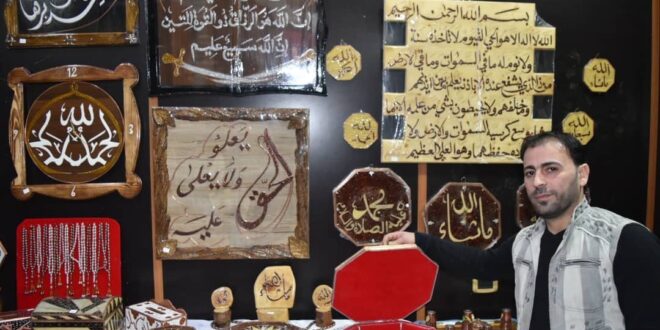 إن الله هو الرزاق ذو القوة المتين
إن الله سميع عليم
بسم الله الرحمن الرحيم
الله لا اله الا هو الحي القيوم لا تاخذه سنة
ولا نوم له ما في السموات وما في الارض
من ذا الذي يشفع عنده الا باذنه يعلم ما بين ايديهم
وما خلفهم ولا يحيطون بشيء من علمه الا بما
شاء وسع كرسيه السموات والارض ولا
يؤده حفظهما وهو العلي العظيم
ما شاء الله
12
الحمد لله
الحق يعلو
ولا يعلى
عليه
محمد
ما شاء الله